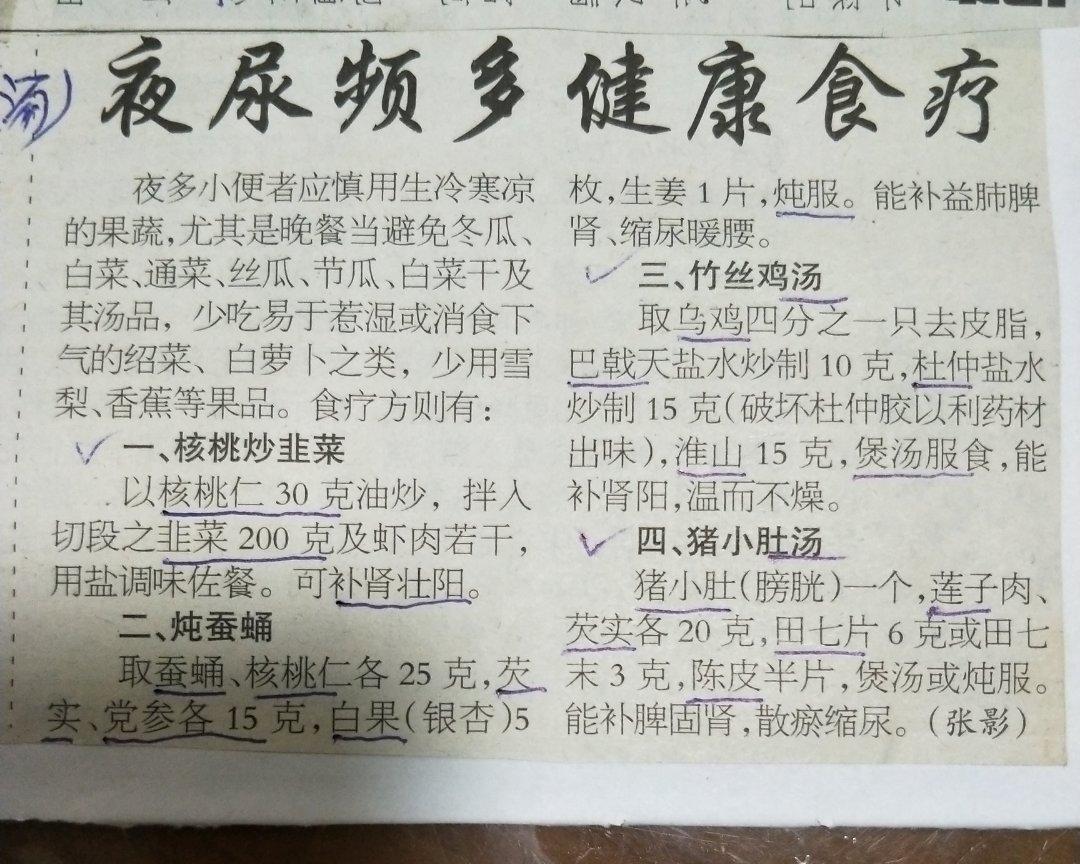 夜尿频多健康食疗
夜多小便者应慎用生冷寒凉
的果蔬,尤其是晚餐当避免冬瓜、
白菜、通菜、丝瓜、节瓜、白菜干及
其汤品，少吃易于惹湿或消食下
气的绍菜、白萝卜之类，少用雪
梨、香蕉等果品。食疗方则有：
一、核桃炒韭菜
以核桃仁 30 克油炒，拌入
切段之韭菜 200 克及虾肉若干，
用盐调味佐餐。可补肾壮阳。
二、炖蚕蛹
取蚕蛹、核桃仁各 25 克,芡
实、党参各 15 克,白果(银杏)5
枚,生姜 1 片,炖服。能补益肺脾
肾、缩尿暖腰。
三、竹丝鸡汤
取乌鸡四分之一只去皮脂，
巴戟天盐水炒制 10 克,杜仲盐水
炒制 15 克(破坏杜仲胶以利药材
出味),淮山 15 克,煲汤服食,能
补肾阳,温而不燥。
四、猪小肚汤
猪小肚(膀胱)一个,莲子肉、
芡实各 20 克,田七片 6 克或田七
末 3 克,陈皮半片,煲汤或炖服。
能补脾固肾,散瘀缩尿。(张影)